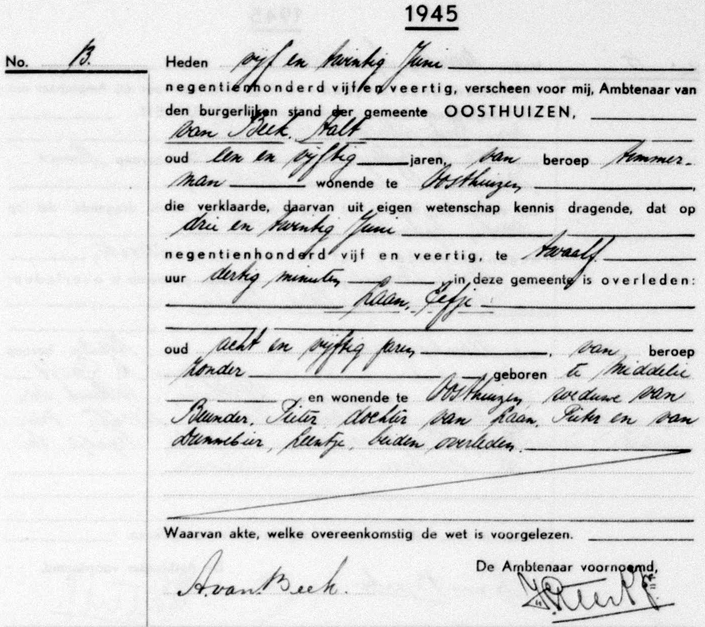 1945
No. 13.
Heden vijf en twintig Juni
negentienhonderd vijf en veertig, verscheen voor mij, Ambtenaar van
den burgerlijken stand der gemeente OOSTHUIZEN,
van Beek, Aalt
oud een en vijftig jaren, van beroep timmer-
man wonende te Oosthuizen,
die verklaarde, daarvan uit eigen wetenschap kennis dragende, dat op
drie en twintig Juni
negentienhonderd vijf en veertig, te twaalf
uur dertig minuten in deze gemeente is overleden:
Laan, Eefje
oud acht en vijftig jaren, van beroep
zonder geboren te Middelie
en wonende te Oosthuizen, weduwe van
Beunder, Pieter dochter van Laan, Pieter en van
Dunnebier, Leentje, beiden overleden.
Waarvan akte, welke overeenkomstig de wet is voorgelezen.
De Ambtenaar voornoemd,
A. van Beek.